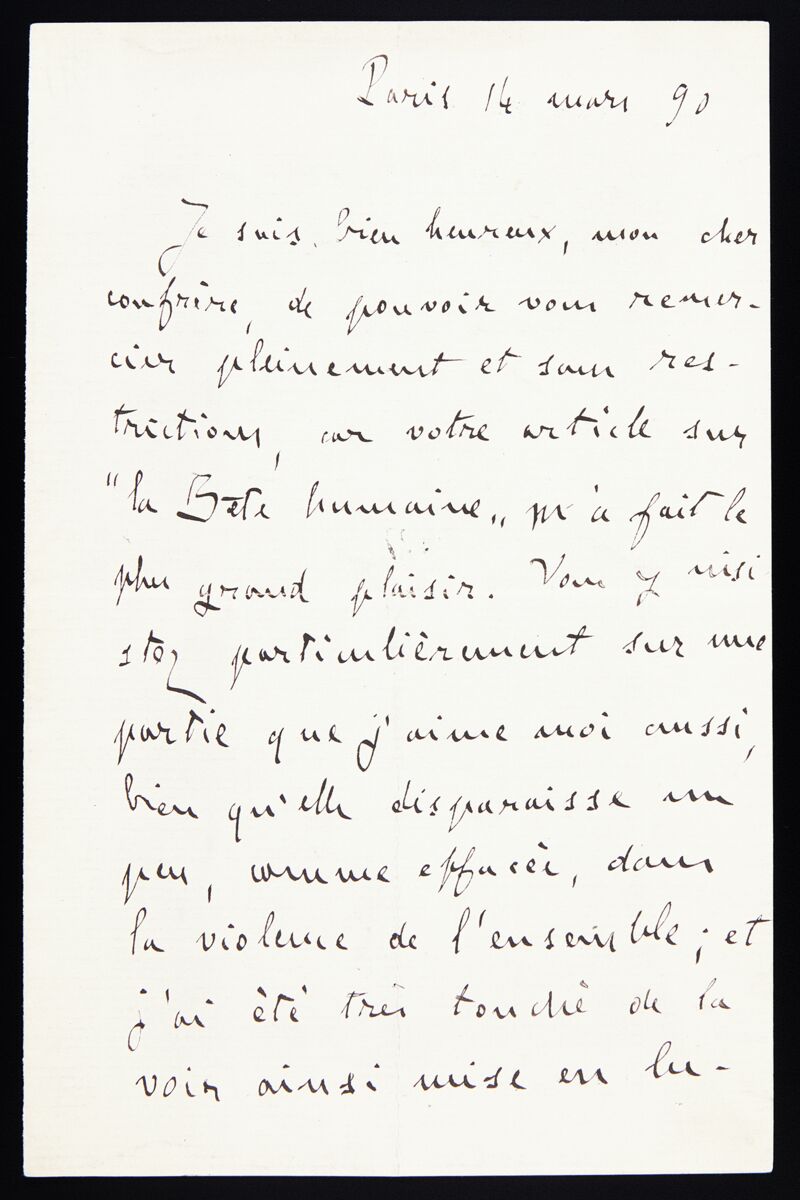 Paris 14 mars 90
Je suis bien heureux, mon cher
confrère, de pouvoir vous remer-
cier pleinement et sans res-
trictions, car votre article sur
"la Bête humaine" m'a fait le
plus grand plaisir. Vous y insi
stez particulièrement sur une
partie que j'aime moi aussi,
bien qu'elle disparaisse un
peu, comme effacée, dans
la violence de l'ensemble; et
j'ai été très touché de la
voir ainsi mise en lu-